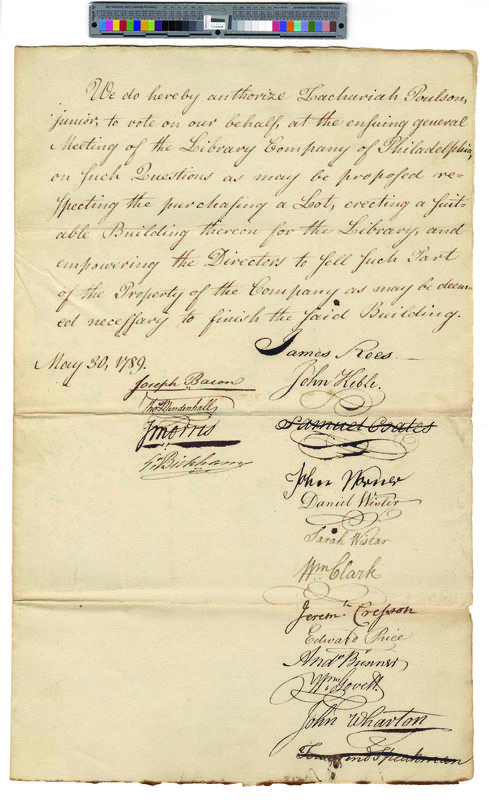 We do hereby authorize Zachariah Poulson,
junior, to vote on our behalf, at the ensuing general
Meeting of the Library Company of Philadelphia,
on such Questions as may be proposed re-
specting the purchasing a Lot, erecting a suit-
able Building thereon for the Library, and
empowering the Directors to sell such Part
of the Property of the Company as may be deem-
ed necessary to finish the said Building.
May 30, 1789.
Joseph Bacon
Thos. Mendenhall
J Morris
Bickham
James Rees
John Keble.
Samuel Coates
John Warner
Daniel Wister
Sarah Wistar
Wm. Clark
Jeremh. Cresson
Edward Price
Andw. Bunner
Wm. Lovett.
John Wharton
Townsend Speakman